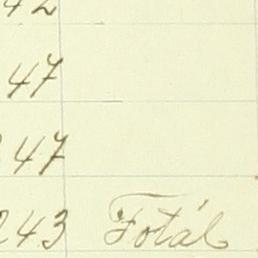 42
47
247
243 Fotál